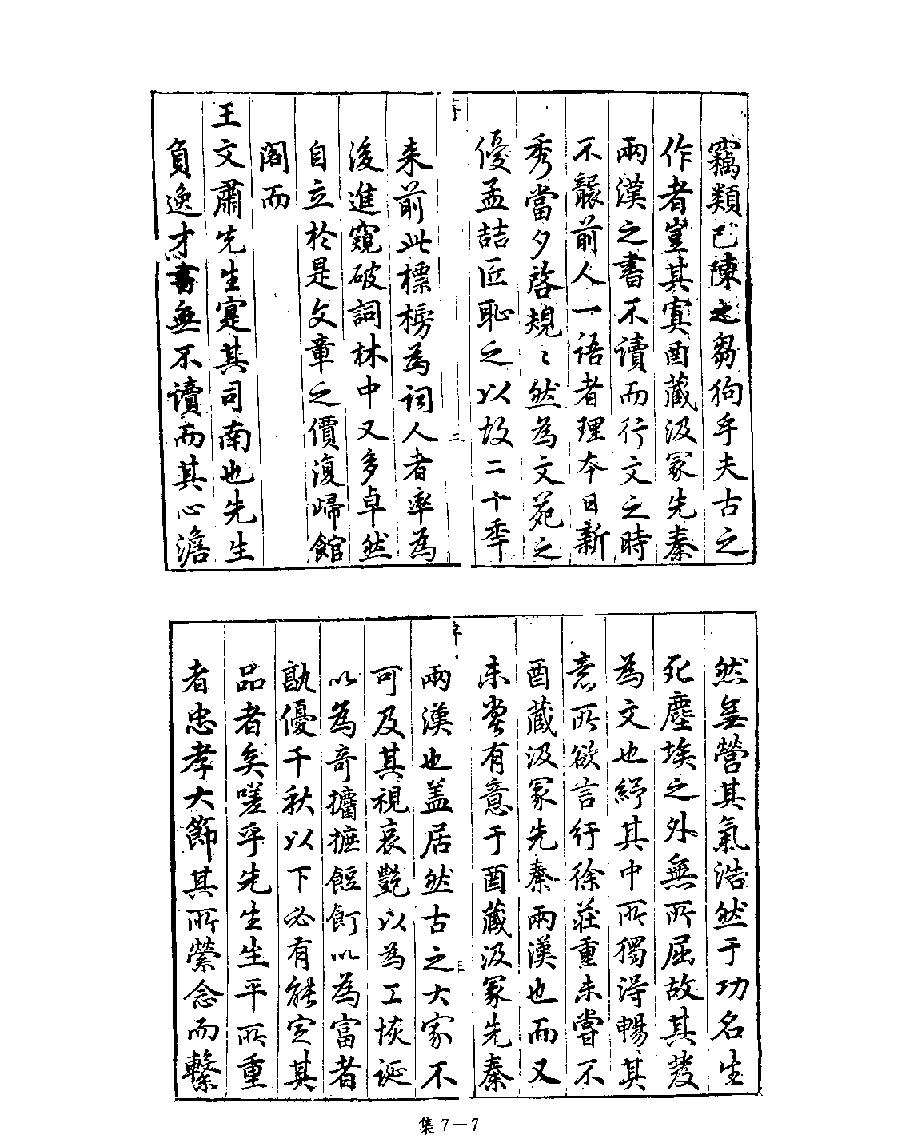 竊類已陳之芻狗乎夫古之
作者豈其寘酉藏汲冢先秦
兩漢之書不讀而行文之時
不襲前人一語者理本日新
秀當夕啓規〻然為文苑之
優孟喆匠恥之以故二十年
序
二
来前此標榜為詞人者率為
後進窺破詞林中又多卓然
自立於是文章之價復歸館
閣而
王文肅先生寔其司南也先生
負逸才書無不讀而其心澹
然無營其氣浩然于功名生
死塵埃之外無所屈故其發
為文也紓其中所獨得暢其
意所欲言行徐莊重未嘗不
酉藏汲冢先秦兩漢也而又
未嘗有意于酉藏汲冢先秦
序
三
兩漢也盖居然古之大家不
可及其視哀艷以為工恢誕
以為奇擂摭餖飣以為富者
孰優千秋以下必有能定其
品者矣嗟乎先生生平所重
者忠孝大節其所縈念而繫
集7—7